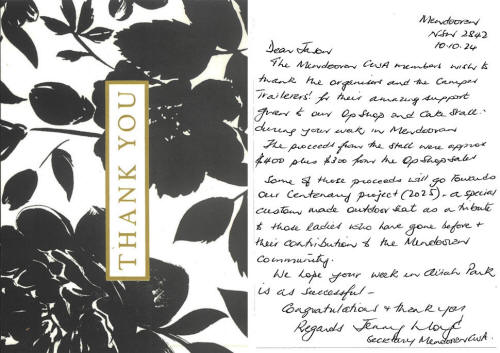 THANK YOU
Mendooran
NSW 2842
10.10.24
Dear Jason
The Mendooran CWA members wish to
thank the organisers and the Camper
Trailerers' for their amazing support
given to our OpShop and Cake Stall -
during your week in Mendooran
The proceeds from the stall were approx
$400 plus $300 from the OpShop sales
Some of those proceeds will go towards
our Centenary project (2025) - a special
custom made outdoor seat as a tribute
to those ladies who have gone before +
their contribution to the Mendooran
community.
We hope your week in Park
is as successful -
Congratulations + thank you
Regards Jenny Lloyd
Secretary Mendooran CWA.